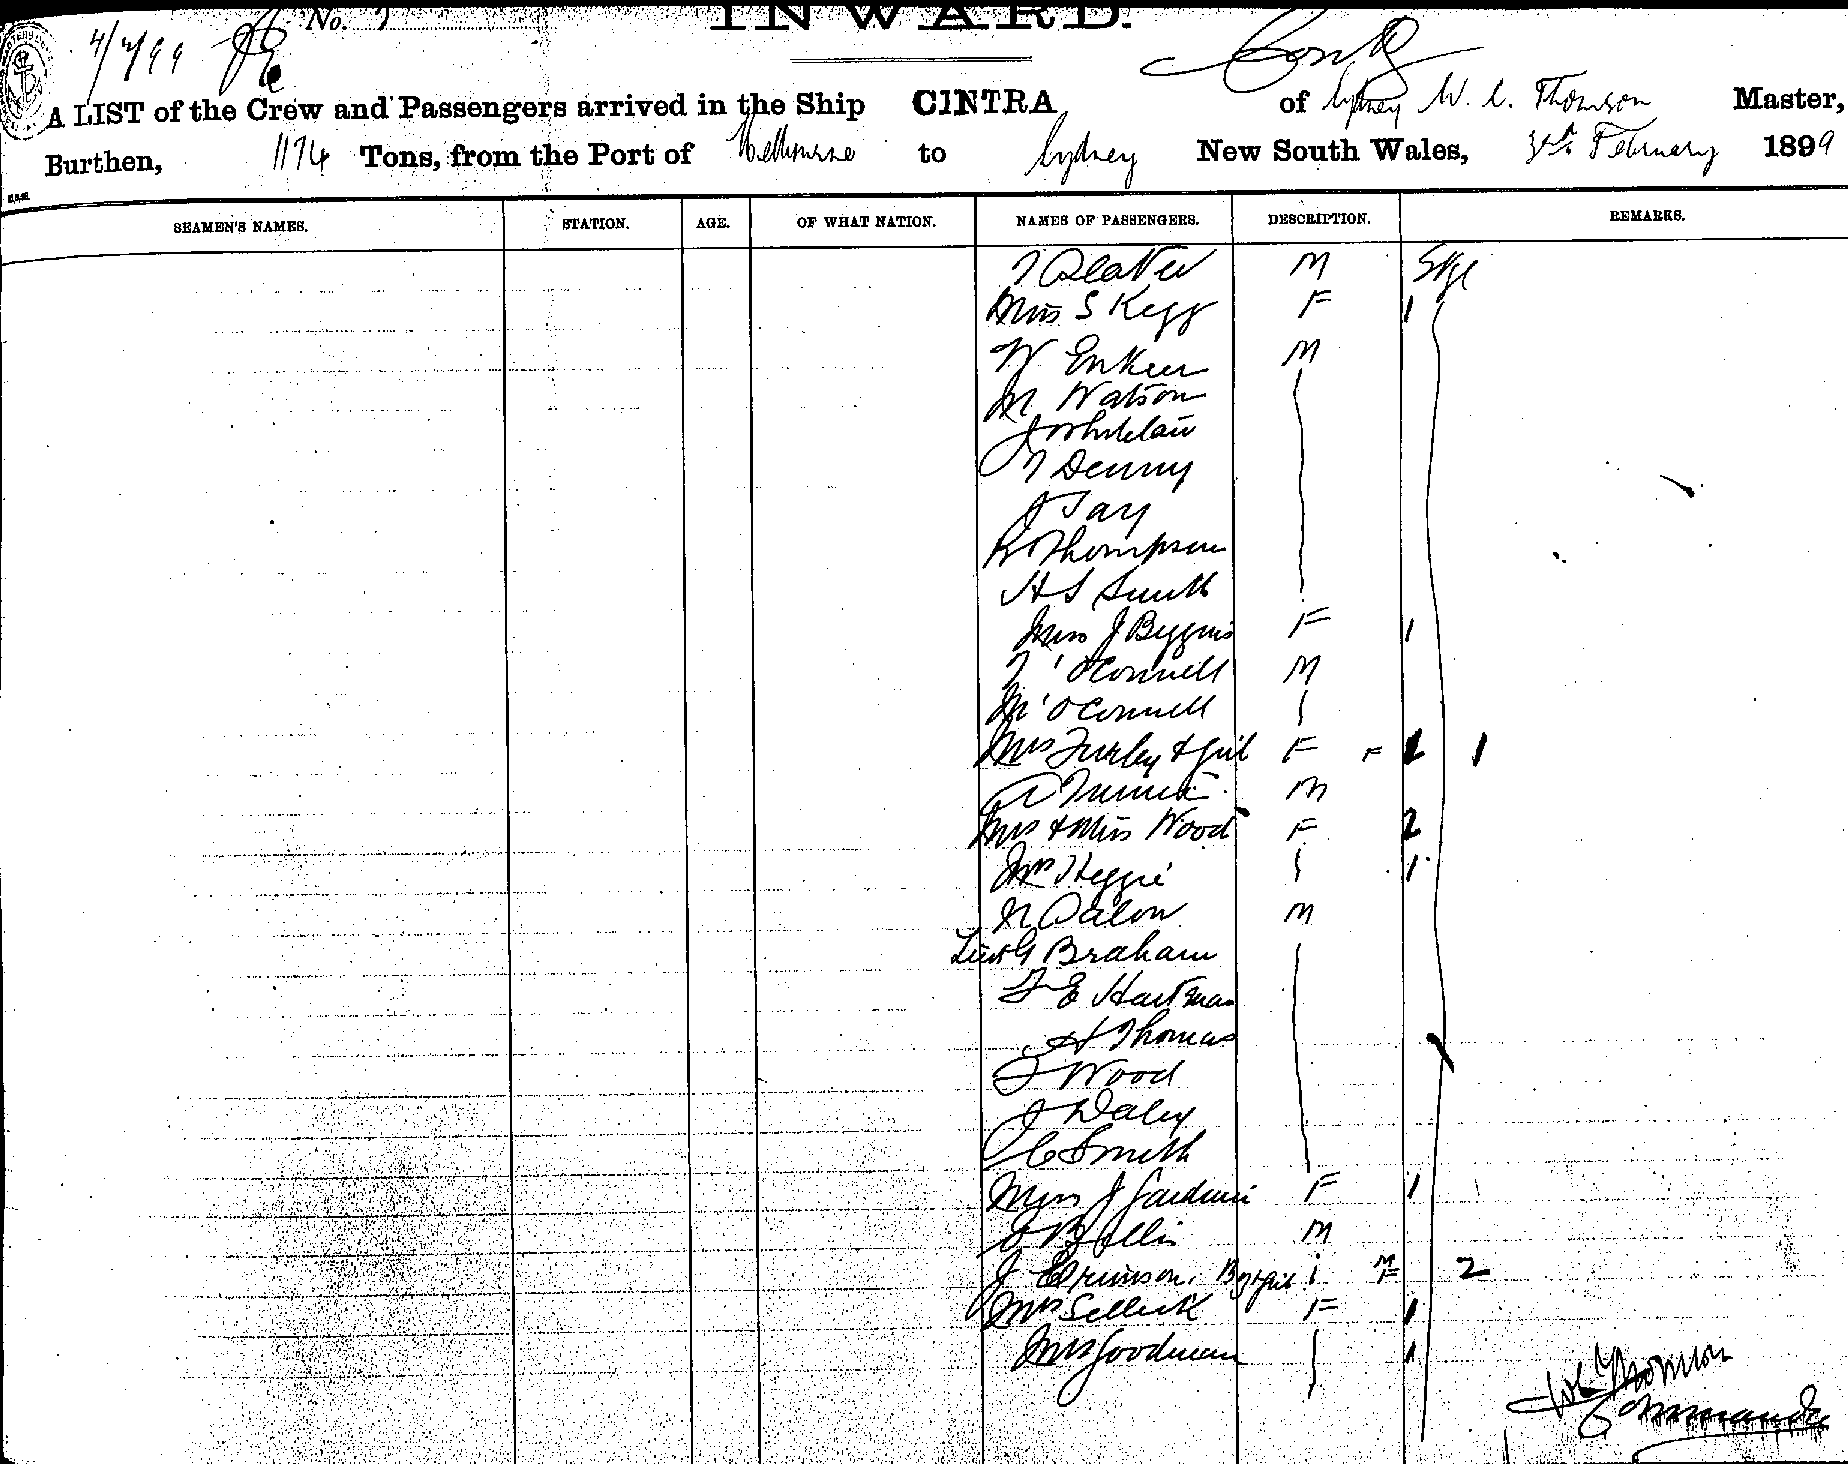 4/2/99 No.
INWARD.
Contd
A LIST of the Crew and Passengers arrived in the Ship CINTRA of Sydney W. C. Thomson Master,
Burthen, 1174 Tons, from the Port of Melbourne to Sydney New South Wales, February 1899
SEAMEN'S NAMES. STATION. AGE. OF WHAT NATION. NAMES OF PASSENGERS. DESCRIPTION. REMARKS.
M Stge
Miss S Kegg F 1
W M
M Watson
J
T Denny
J Tay
Thompson
H S Smith
Miss J Beggins F 1
T O'Connell M
M O'Connell
Mrs Furley & girl F F 1 1
A M
Mrs & Miss Wood F 2
Mrs Heggie 1
M
Lieut G Braham
F E Hartman
A Thomas
F Wood
J Daley
C Smith
Miss J Gardiner F 1
M
J Boy & girl M F 2
Mrs Sellick F 1
Mrs Goodman 1
W C Thomson
Commander